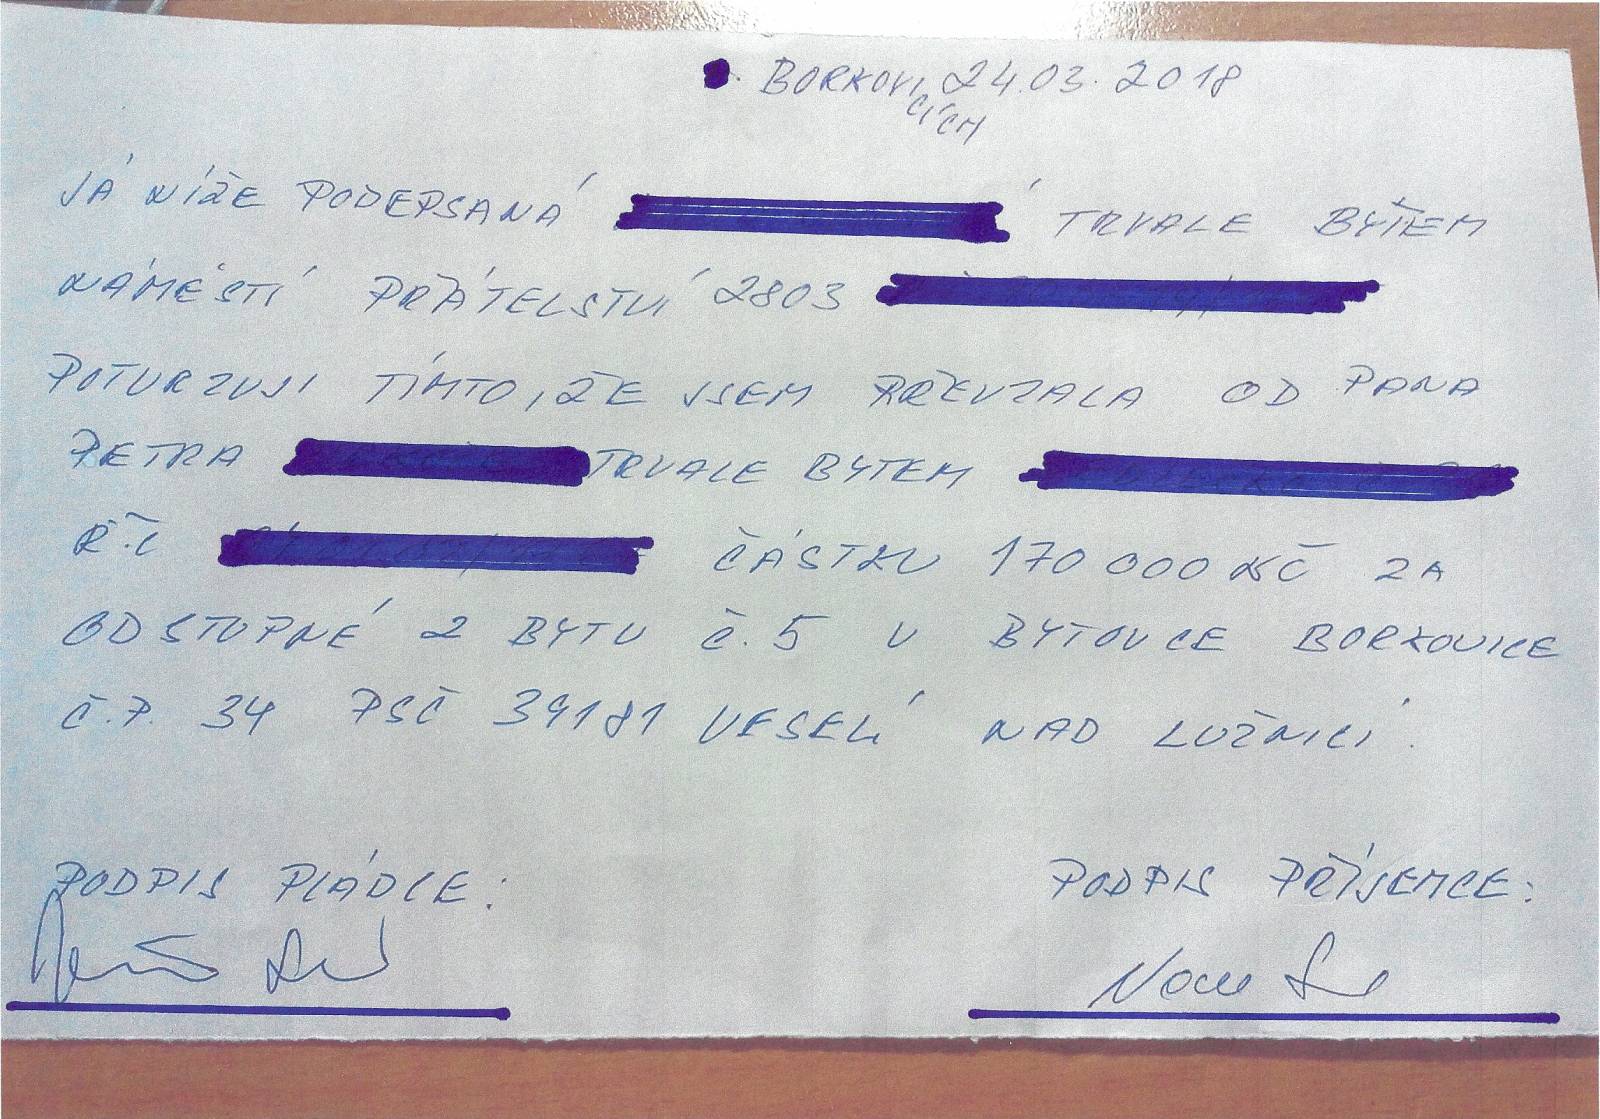 BORKOVICÍCH 24.03.2018
JÁ NÍŽE PODEPSANÁ TRVALE BYTEM
NÁMĚSTÍ PŘÁTELSTVÍ 2803
POTVRZUJI TÍMTO, ŽE JSEM PŘEVZALA OD PANA
PETRA TRVALE BYTEM
R.Č ČÁSTKU 170 000 KČ ZA
ODSTUPNÉ Z BYTU Č.5 V BYTOVCE BORKOVICE
Č.P. 34 PSČ 39181 VESELÍ NAD LUŽNICÍ.
PODPIS PLÁDCE: PODPIS PŘÍJEMCE: